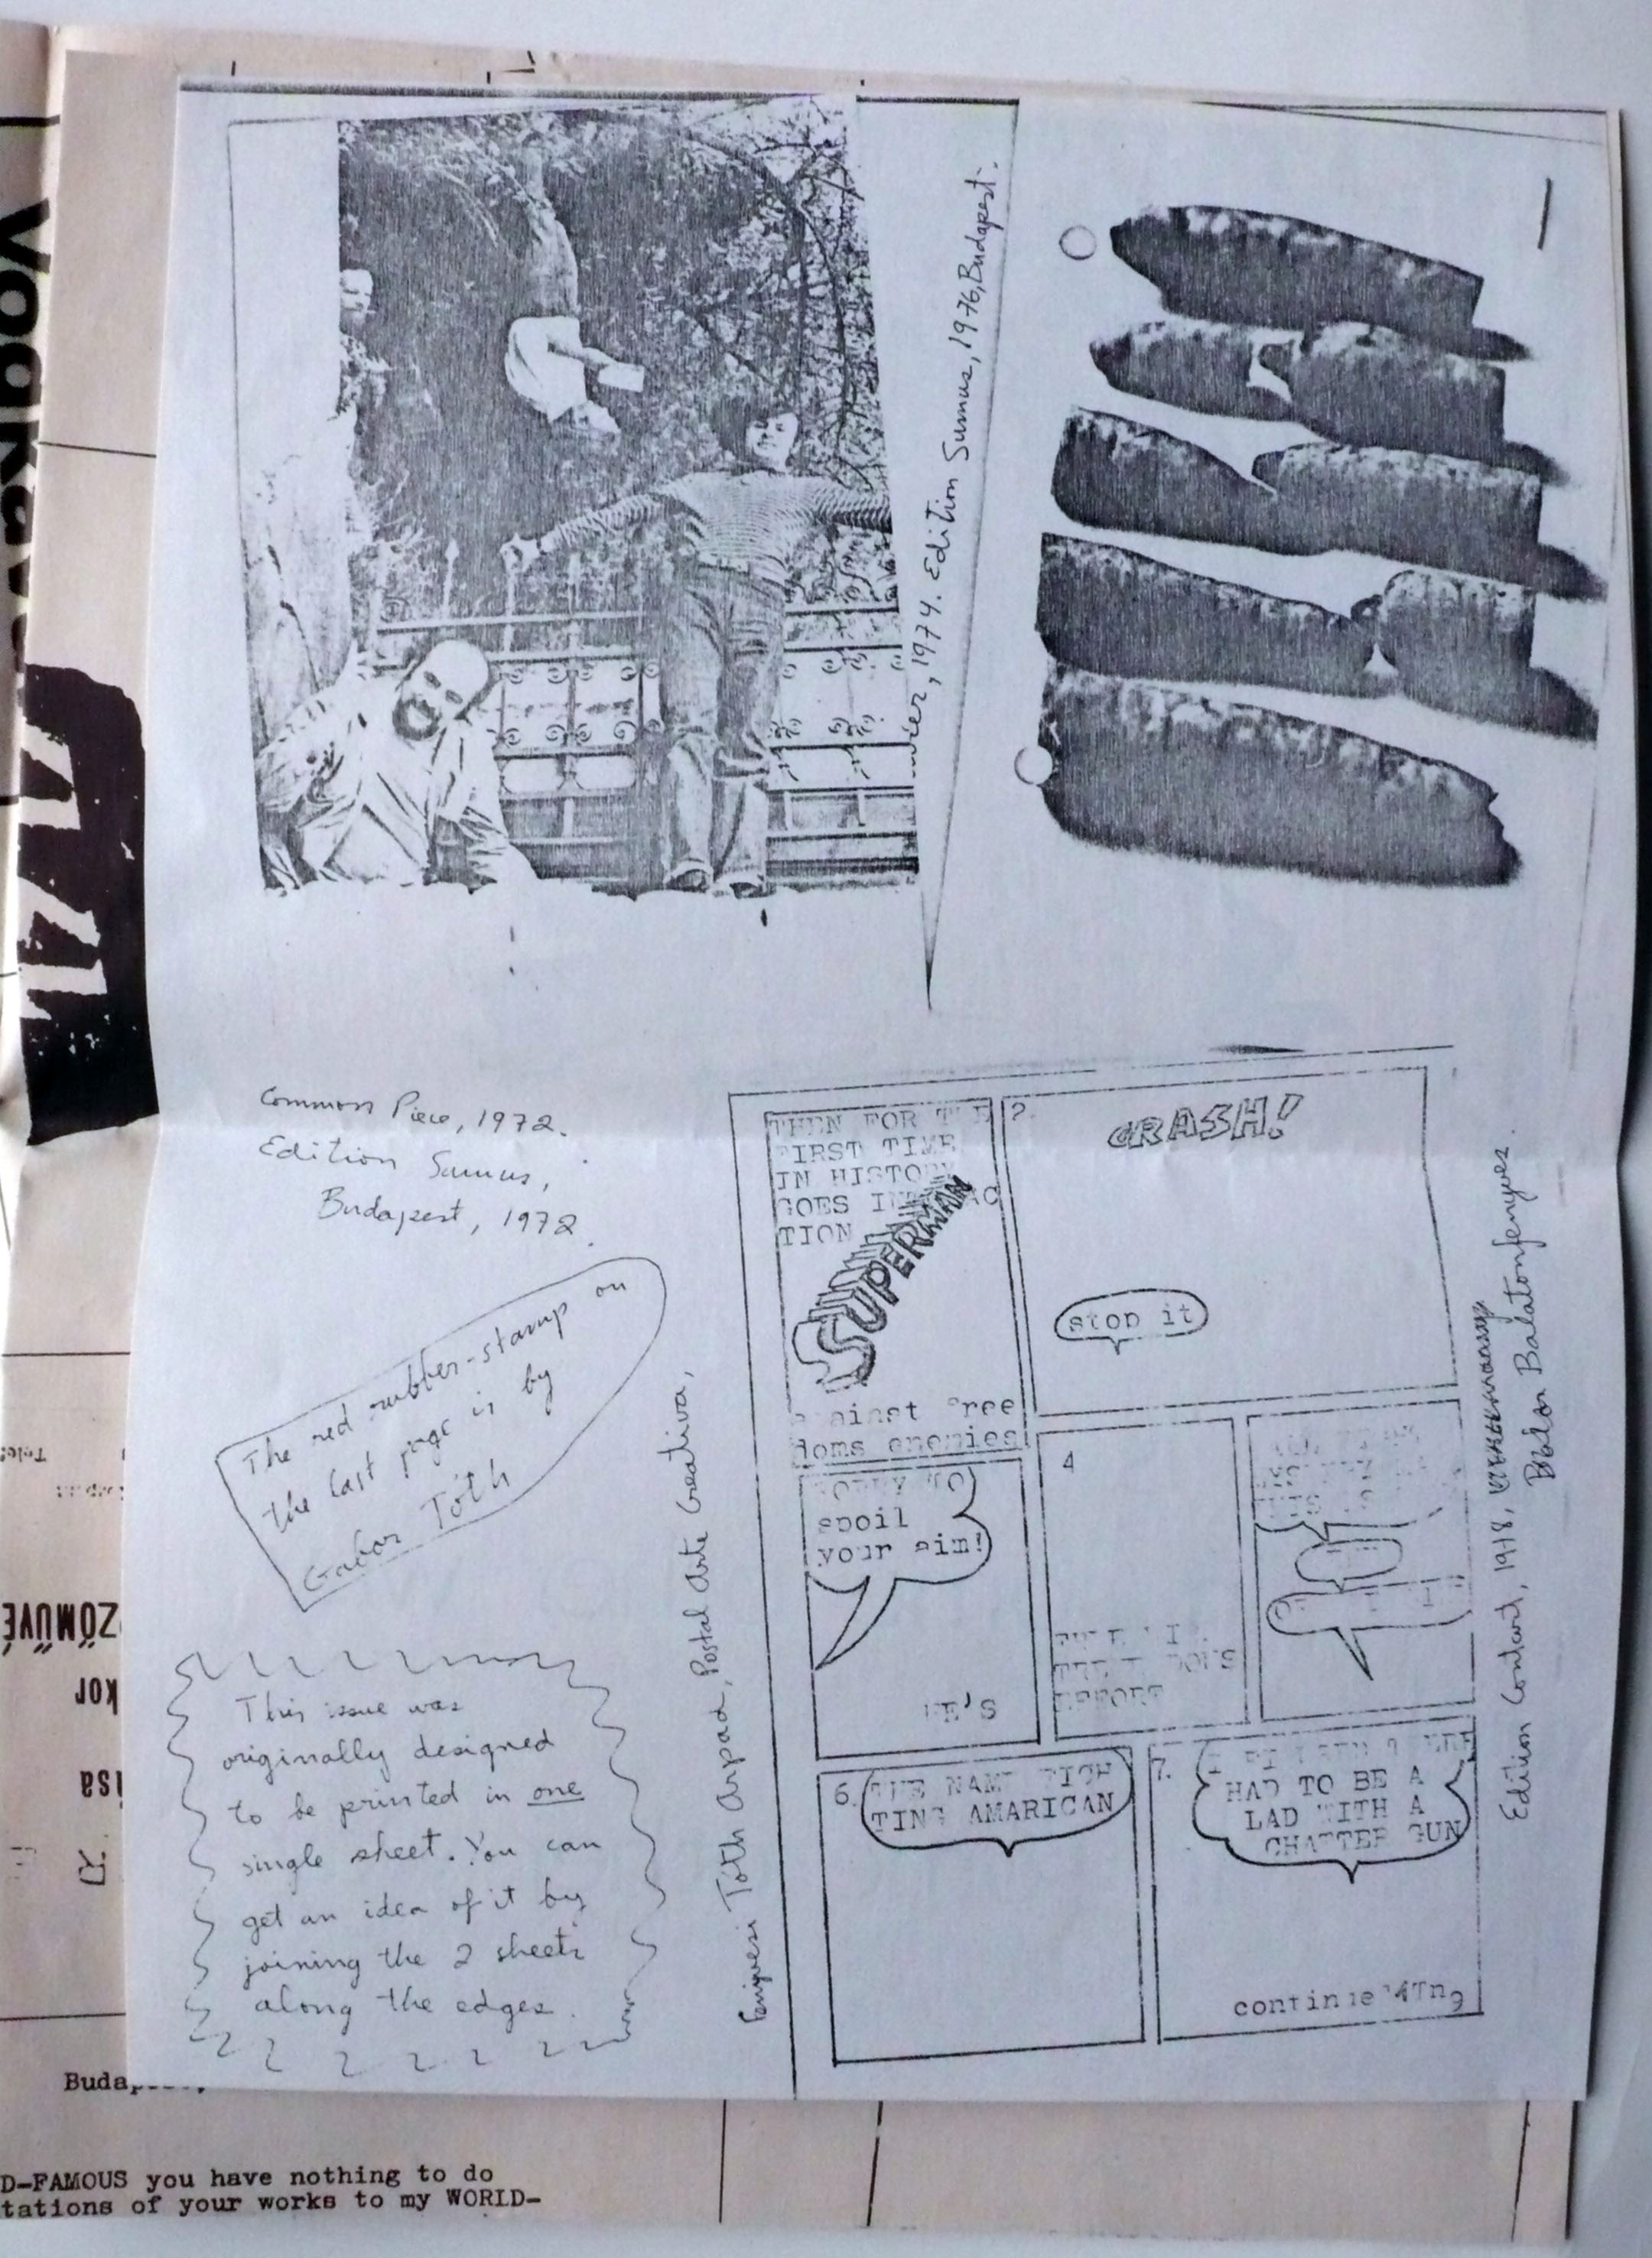 1974. Edition Sumus, 1976, Budapest.
Common Piece, 1972.
Edition Sumus,
Budapest, 1972.
The red rubber-stamp on
the last page is by
Gabor Tóth
This issue was
originally designed
to be printed in one
single sheet. You can
get an idea of it by
joining the 2 sheets
along the edges.
Tóth Arpad, Postal Arte Creativa,
THEN FOR THE
FIRST TIME
IN HISTORY
GOES INTO AC
TION
SUPERMAN
against free
doms enemies
2.
CRASH!
stop it
TO
spoil
your aim!
HE'S
4
EFFORT
6.
THE NAME FIGH
TING AMARICAN
7.
HAD TO BE A
LAD WITH A
CHATTER GUN
Edition Contart, 1978,
Balatonfenyves.
ZŐMŰVÉ
kor
isa
D-FAMOUS you have nothing to do
tations of your works to my WORLD-